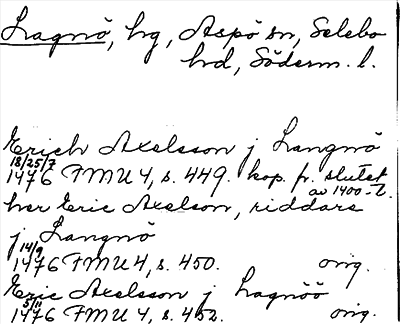 Lagnö, hg, Aspö sn, Selebo
hd, Söderm. l.
Erich Axelsson j Langnö
18/25/7
1476 FMU 4, s. 449. kop. fr. slutet
av 1400-t.
her Eric Axelson, riddare
j Langnö
14/9
1476 FMU 4, s. 450. orig.
Eric Axelsson j Lagnöö
5/11
1476 FMU 4, s. 452. orig.